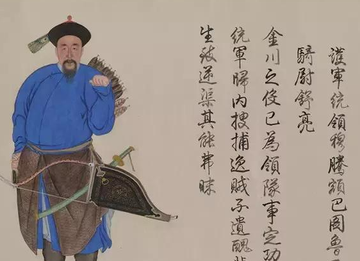 護軍統領穆騰額巴圖魯
騎尉舒亮
金川之役已為領隊事定功
統軍歸內搜捕逸賊不遺醜
生致逆渠其能弗昧